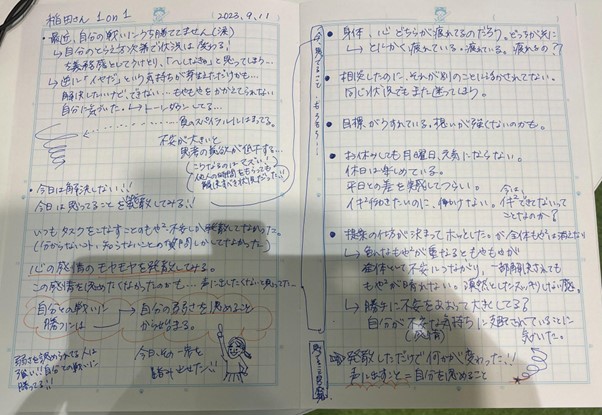 稲田さん 1on1
2023.9.11
・最近、自分の戦いに勝ててません(涙)
→自分のとらえ方次第で状況は変わる!
を義務感としてうけとり、「べしだきね」と思ってしまう…
→逆に「イヤだ」という気持ちが芽ばえただけかも…
解決したいけど、できない…もやもやをかかえてられない
自分に気づいた。→トーンダウンしてる…
負のスパイラルにはまってる。
不安が大きいと
思考の意欲が低下する…
こうなるのはマズい!
他人の時間をもらっても
・今日は再発しない!!
今日は思ってることを発散してみる!!
いつもタスクをこなすことのもやもや不安しか発散してなかった。
(分からないコト、知らないことの質問しかしてなかった)
心の感情のモヤモヤを発散してみる。
この感情を認めたくなかったのかも…声に出したくないと思ってた…
自分との戦いに
勝つには
→自分の弱さを認めること
から始まる。
弱さを認められる人は
強い!!自分との戦いに
勝ってる!!
今日、その一歩を
踏み出せた!!
今思ってること、もろもろ…
・身体、心どちらが疲れてるのだろう。どっちが先に
→とにかく疲れている。疲れている。疲れとの?
・相談したのに、それが別のことにいかされてない。
同じ状況でもまた迷ってしまう。
・目標がうすれている。想いが強くないのかも。
・お休みしても月曜日、元気にならない。
休日は楽しめている。
平日との差を実感してつらい。
今は、
イキできてないって
ことなのか?
・提案の仕方が決まってホッとした。が全体もやもやは消えない
→色んなもやもやが重なるともやもやが
全体として不安につながり、一部解決されても
もやもやが晴れない。
→勝手に不安をあおって大きくしてる?
自分が不安な気持ちに支配されていることに
(感情)
気づいた。
⇒発散しただけで何かが変わった!!
声に出すこと=自分を認めること